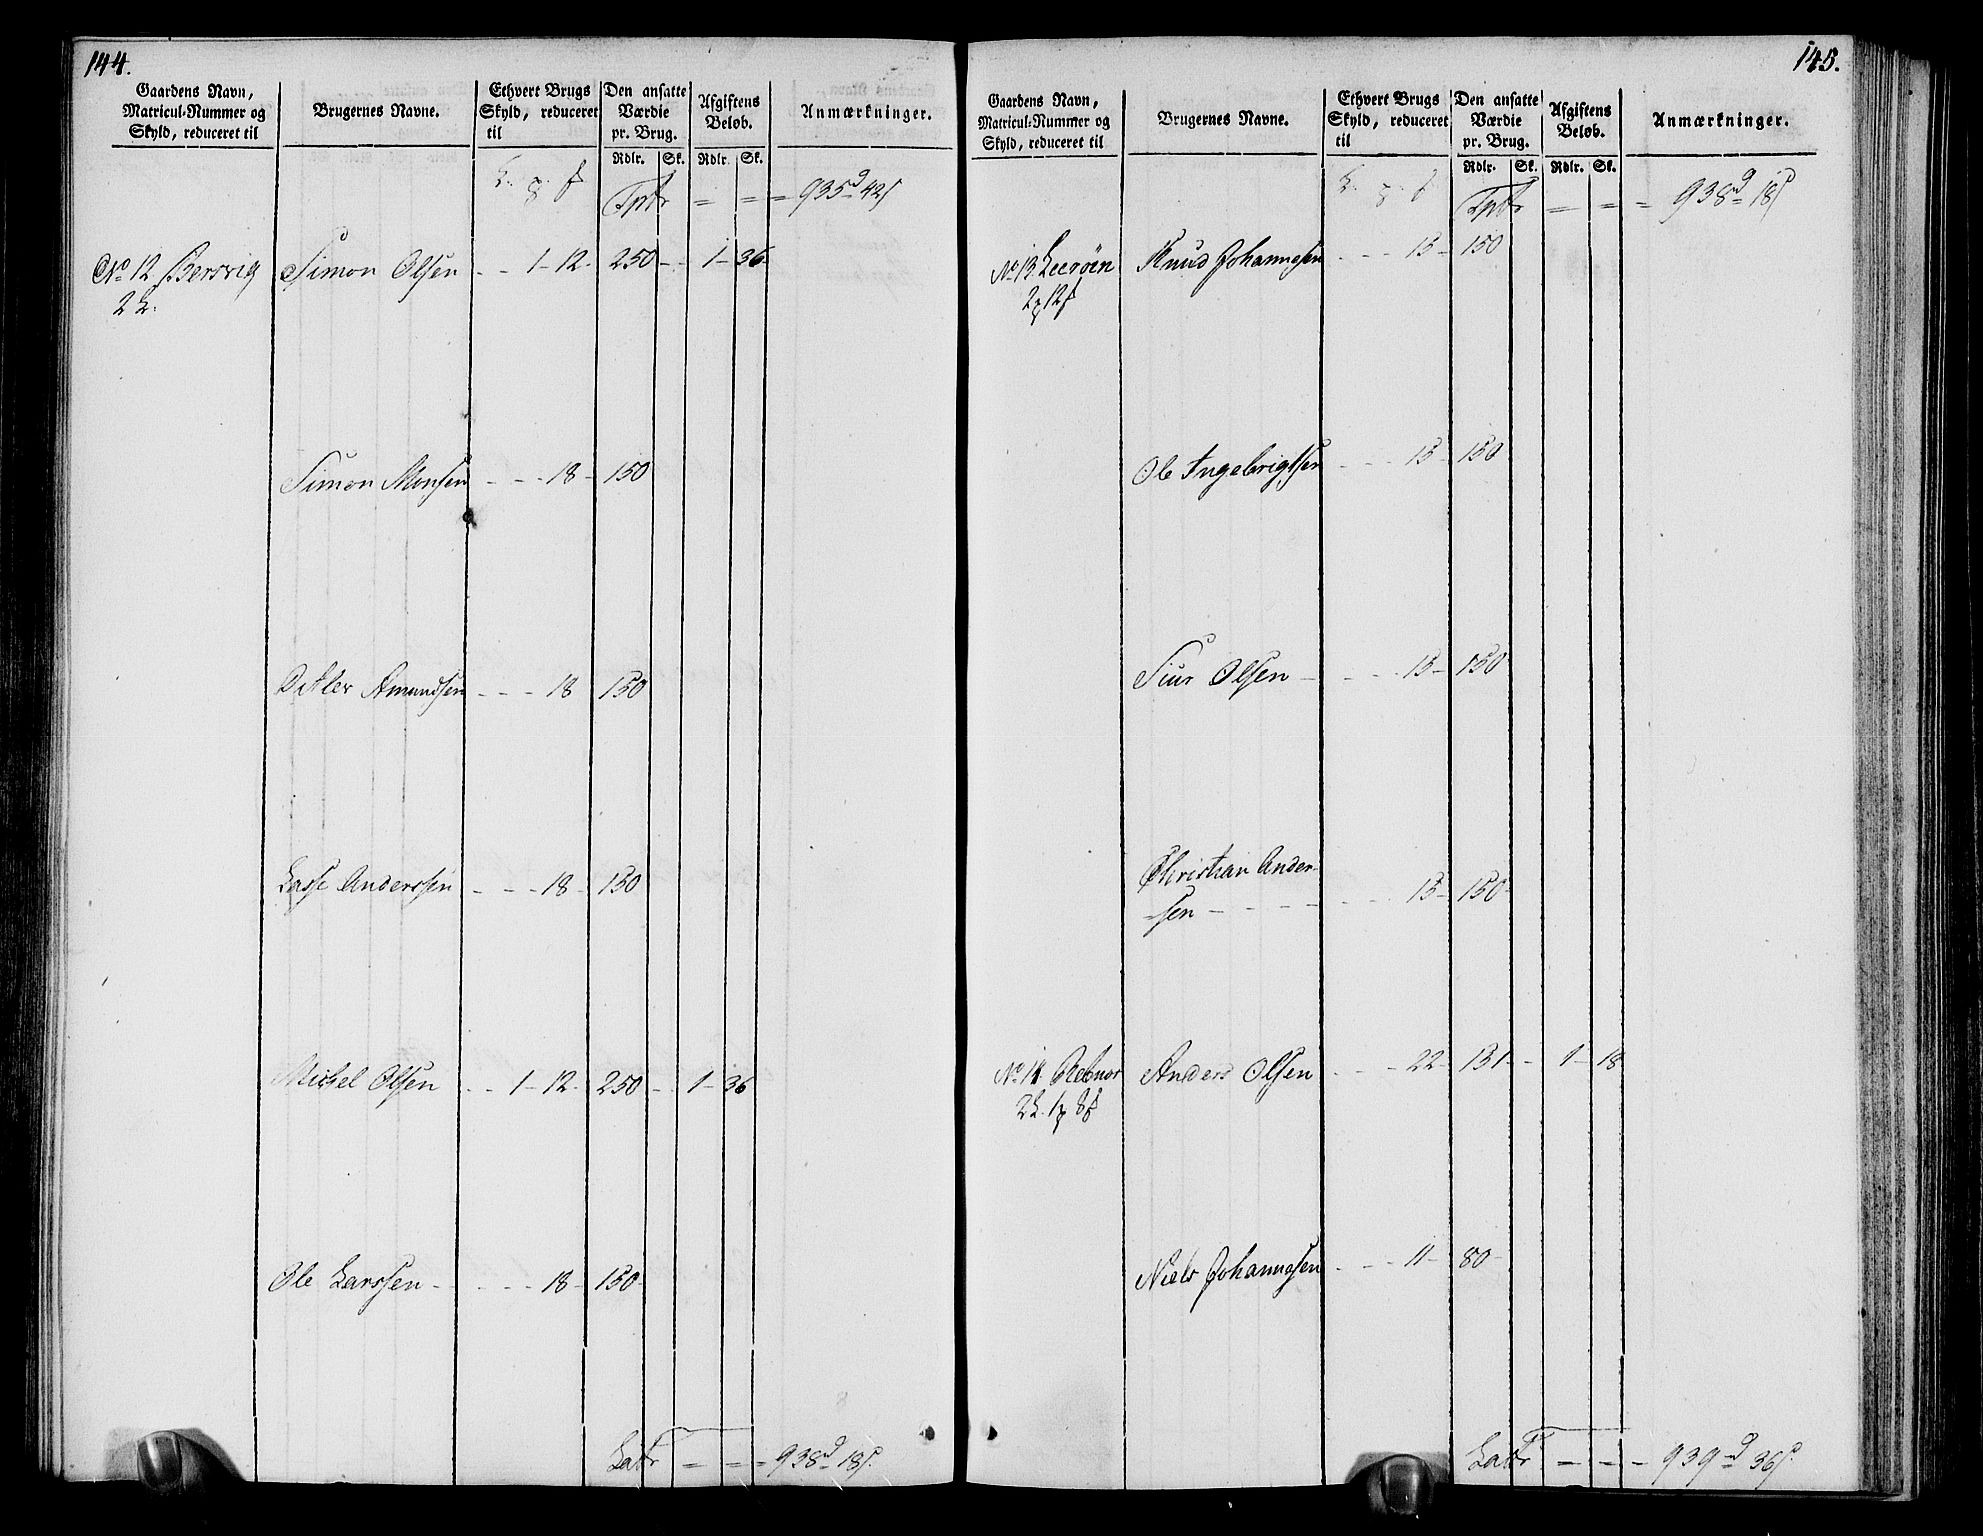 144.
Gaardens Navn, Matricul-Nummer og Skyld, reduceret til
Brugernes Navne.
Ethvert Brugs Skyld, reduceret til
Den ansatte Værdie pr. Brug.
Afgiftens Beløb.
Anmærkninger.
Rdlr. Sk. Rdlr. Sk.
Tptr = = = 935 42
No 12 Bersvig Simon Olsen - - 1 - 12 - 250 - - 1 - 36
2
Simon Monsen - - - 18 - 150
Ditlev Amundsen - - - 18 150
Lasse Anderssen - - - 18 - 150
Michel Olsen - - 1 - 12 - 250 - - 1 - 36
Ole Larssen - - - - 18 - 150
Latr = = = 938 18
145.
Gaardens Navn, Matricul-Nummer og Skyld, reduceret til
Brugernes Navne.
Ethvert Brugs Skyld, reduceret til
Den ansatte Værdie pr. Brug.
Afgiftens Beløb.
Anmærkninger.
Rdlr. Sk. Rdlr. Sk.
Tptr = = = 938 18
No 13 Leerøen Knud Johannesen - - - 15 - 150
2 12
Ole Ingebrigtsen - - - 15 - 150
Siur Olsen - - - - 15 - 150
Christian Ander-
-sen - - - - - - - 15 - 150
No 14 Rebnor Anders Olsen - - - 22 - 131 - 1 - 18
2 1 8
Niels Johannesen - - - 11 - 80 -
Latr = = = 939 36